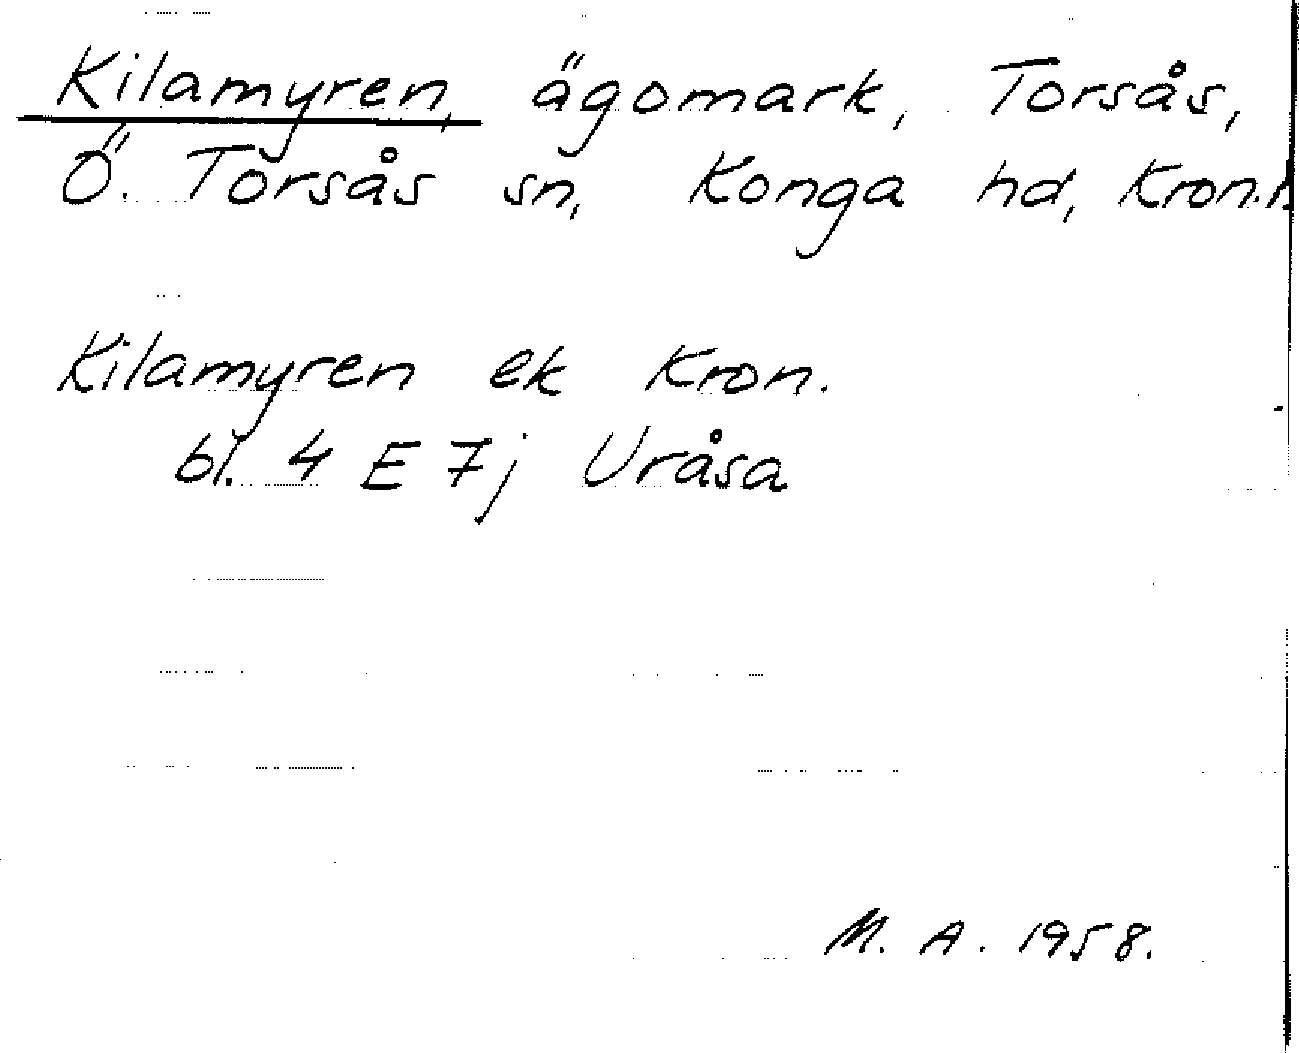 Kilamyren, ägomark, Torsås,
Ö. Torsås sn, Konga hd, Kron.
Kilamyren ek Kron.
bl. 4 E 7j Uråsa
M. A. 1958.